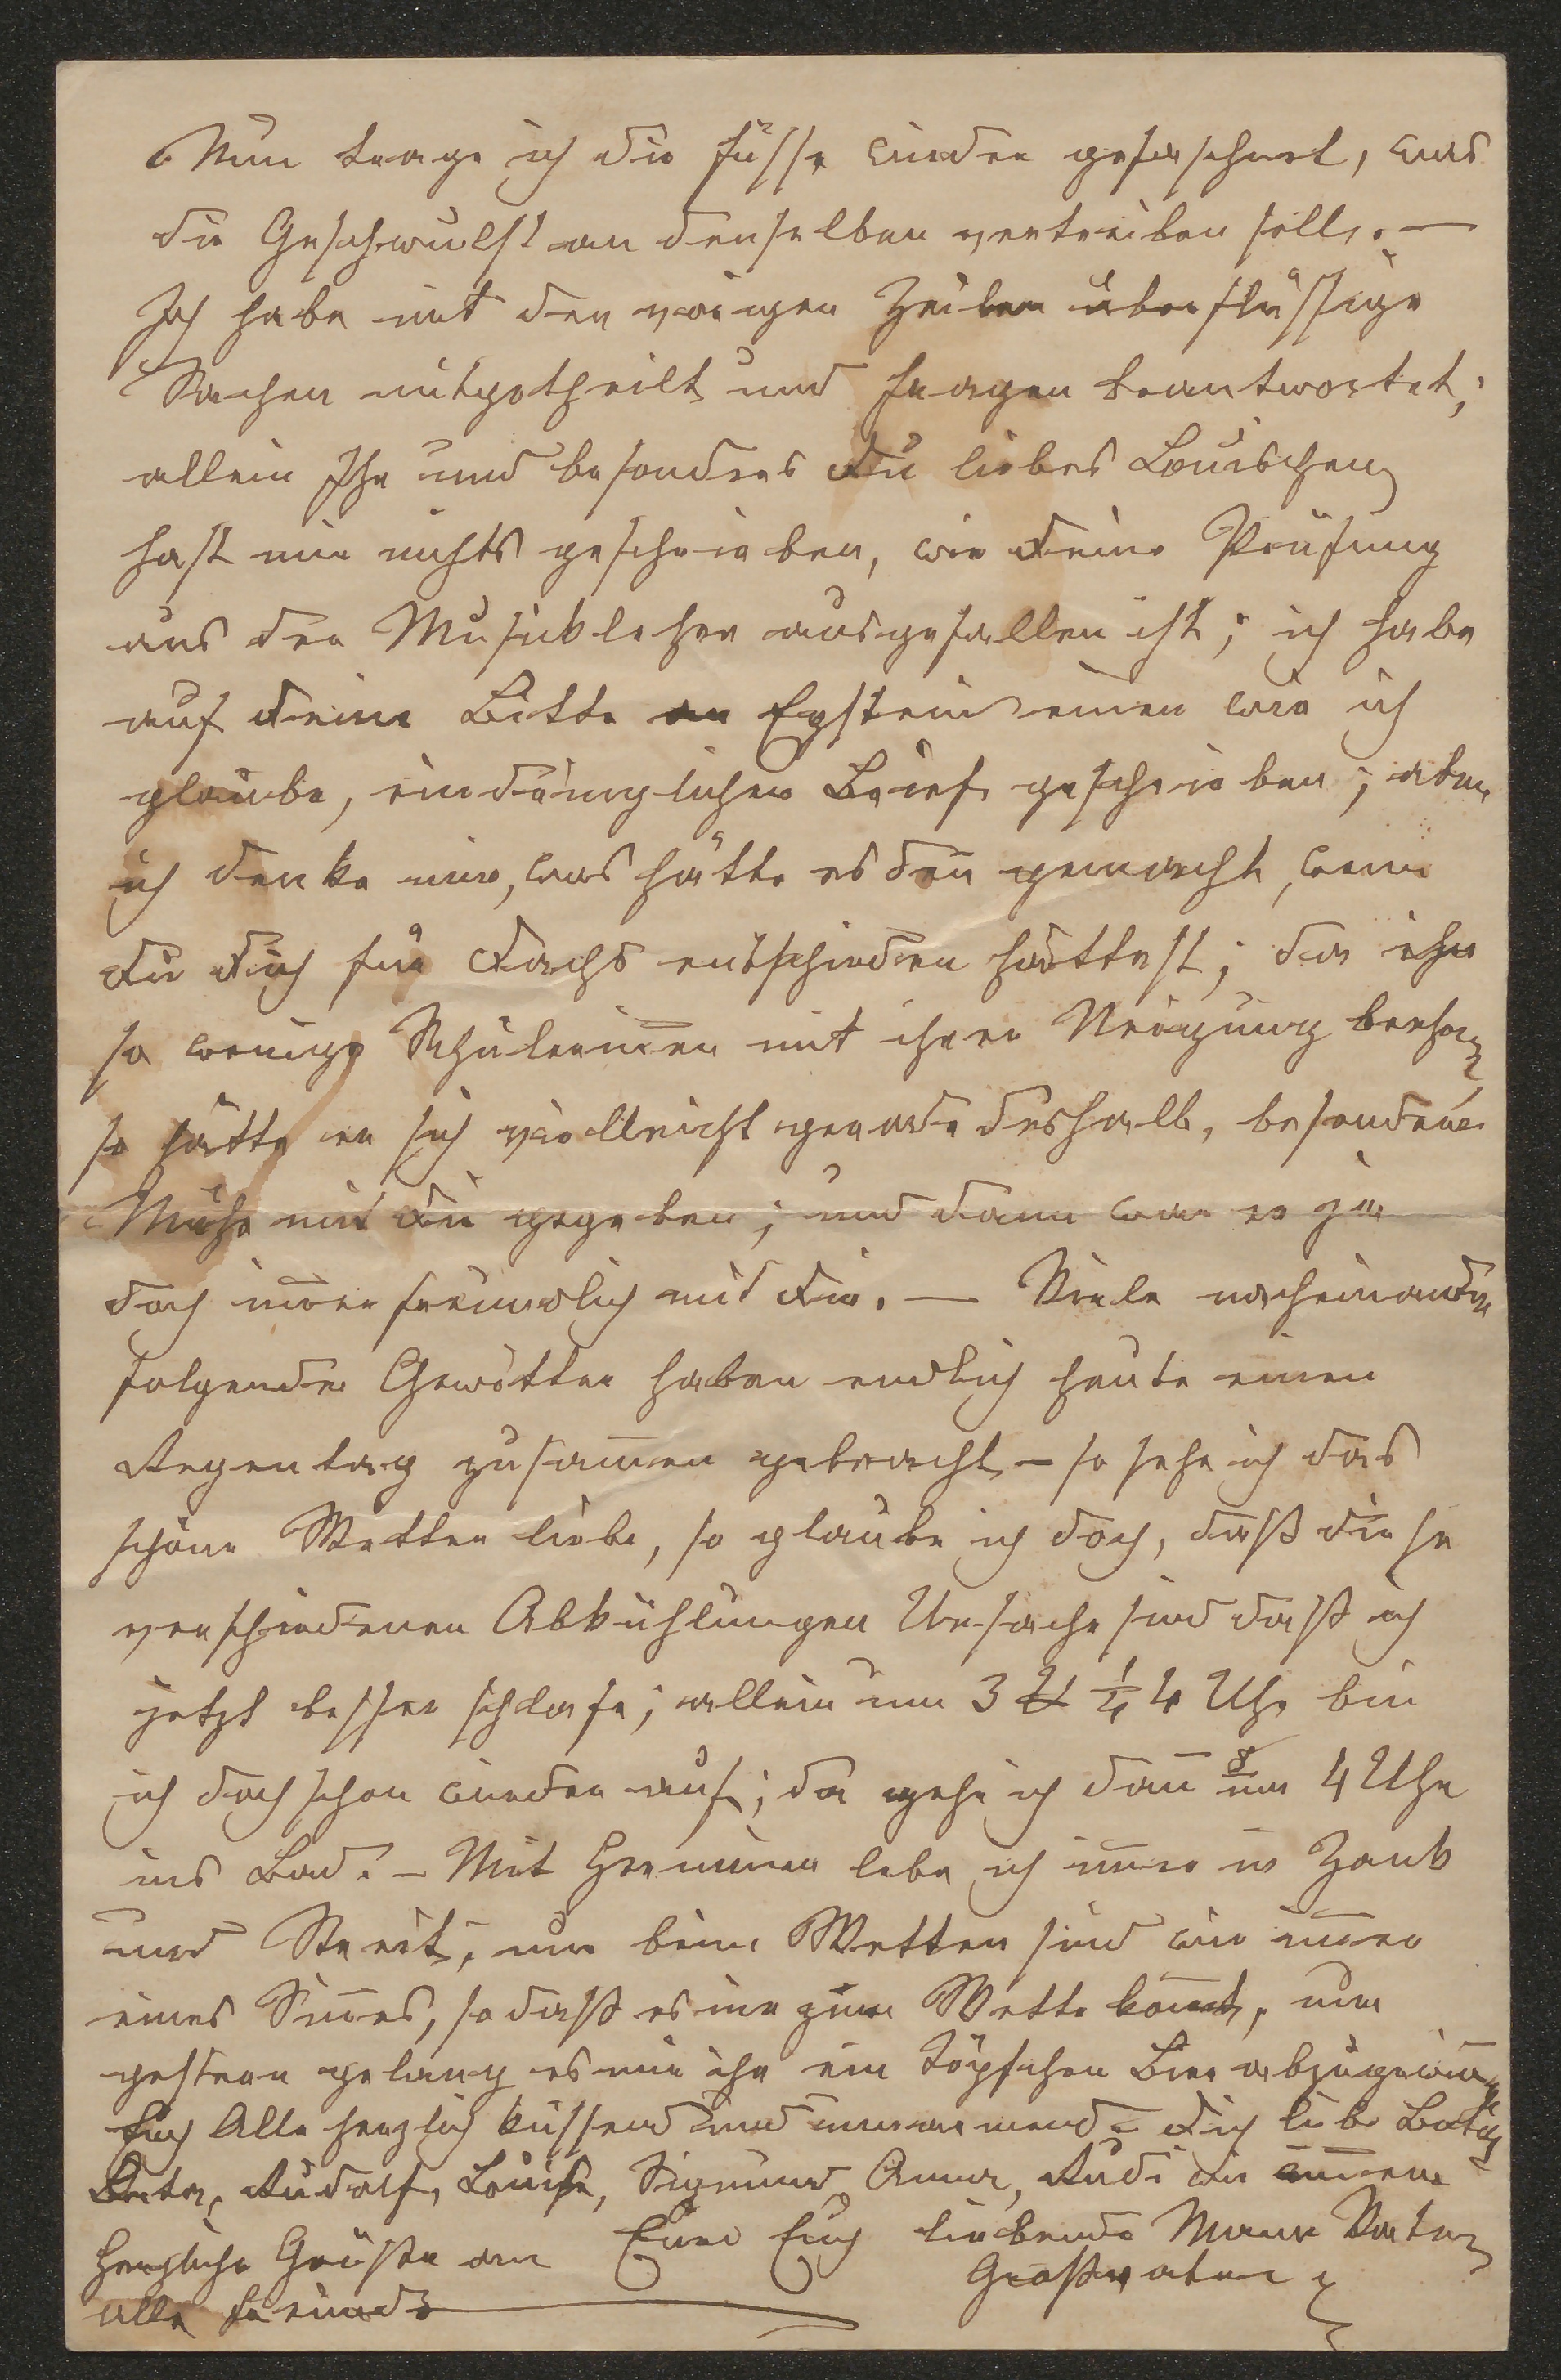 Nun trage ich die Füsse wieder gefascht, was
die Geschwulst an denselben vertreiben soll. —
Ich habe mit den vorigen Zeilen überflüssige
Sachen mitgetheilt und Fragen beantwortet;
allein Ihr und besonders Du liebes Louischen
hast mir nichts geschrieben, wie Deine Prüfung
aus der Musiklehre ausgefallen ist; ich habe
auf Deine Bitte an Epstein einen wie ich
glaube, eindringlichen Brief geschrieben; aber
ich denke mir, was hätte es den̄ gemacht, wenn
Du Dich für Dachs entschieden hättest; da er
so wenige Schülerin̄en mit ihrer Neigung beehren,
so hätte er sich vielleicht gerade deshalb, besondere
Mühe mit Dir gegeben; und dann war er ja
doch im̄er freundlich mit Dir. — Viele nacheinander
folgende Gewitter haben endlich heute einen
Regentag zusam̄en gebracht – so sehr ich das
schöne Wetter liebe, so glaube ich doch, daß diese
verschiedenen Abkühlungen Ursache sind daß ich
jetzt besser schlafe; allein um 3 U ¼ 4 Uhr bin
ich doch schon wieder auf; da gehe ich dan̄ um 4 Uhr
ins Bad. – Mit Hermine lebe ich im̄er in Zank
und Streit, nur beim Wetten sind wir im̄er
eines Sin̄es, so daß es nie zur Wette kom̄t, nur
gestern gelang es mir ihr ein Töpfchen Bier abzugewin̄en
Euch Alle herzlich küssend und umarmend. Dich liebe Betty
Berta, Rudolf, Louise, Sigmund Anna, Rudi wie im̄er
Herzliche Grüße an Euer Euch liebender Mann Vater
alle Freunde Großvater